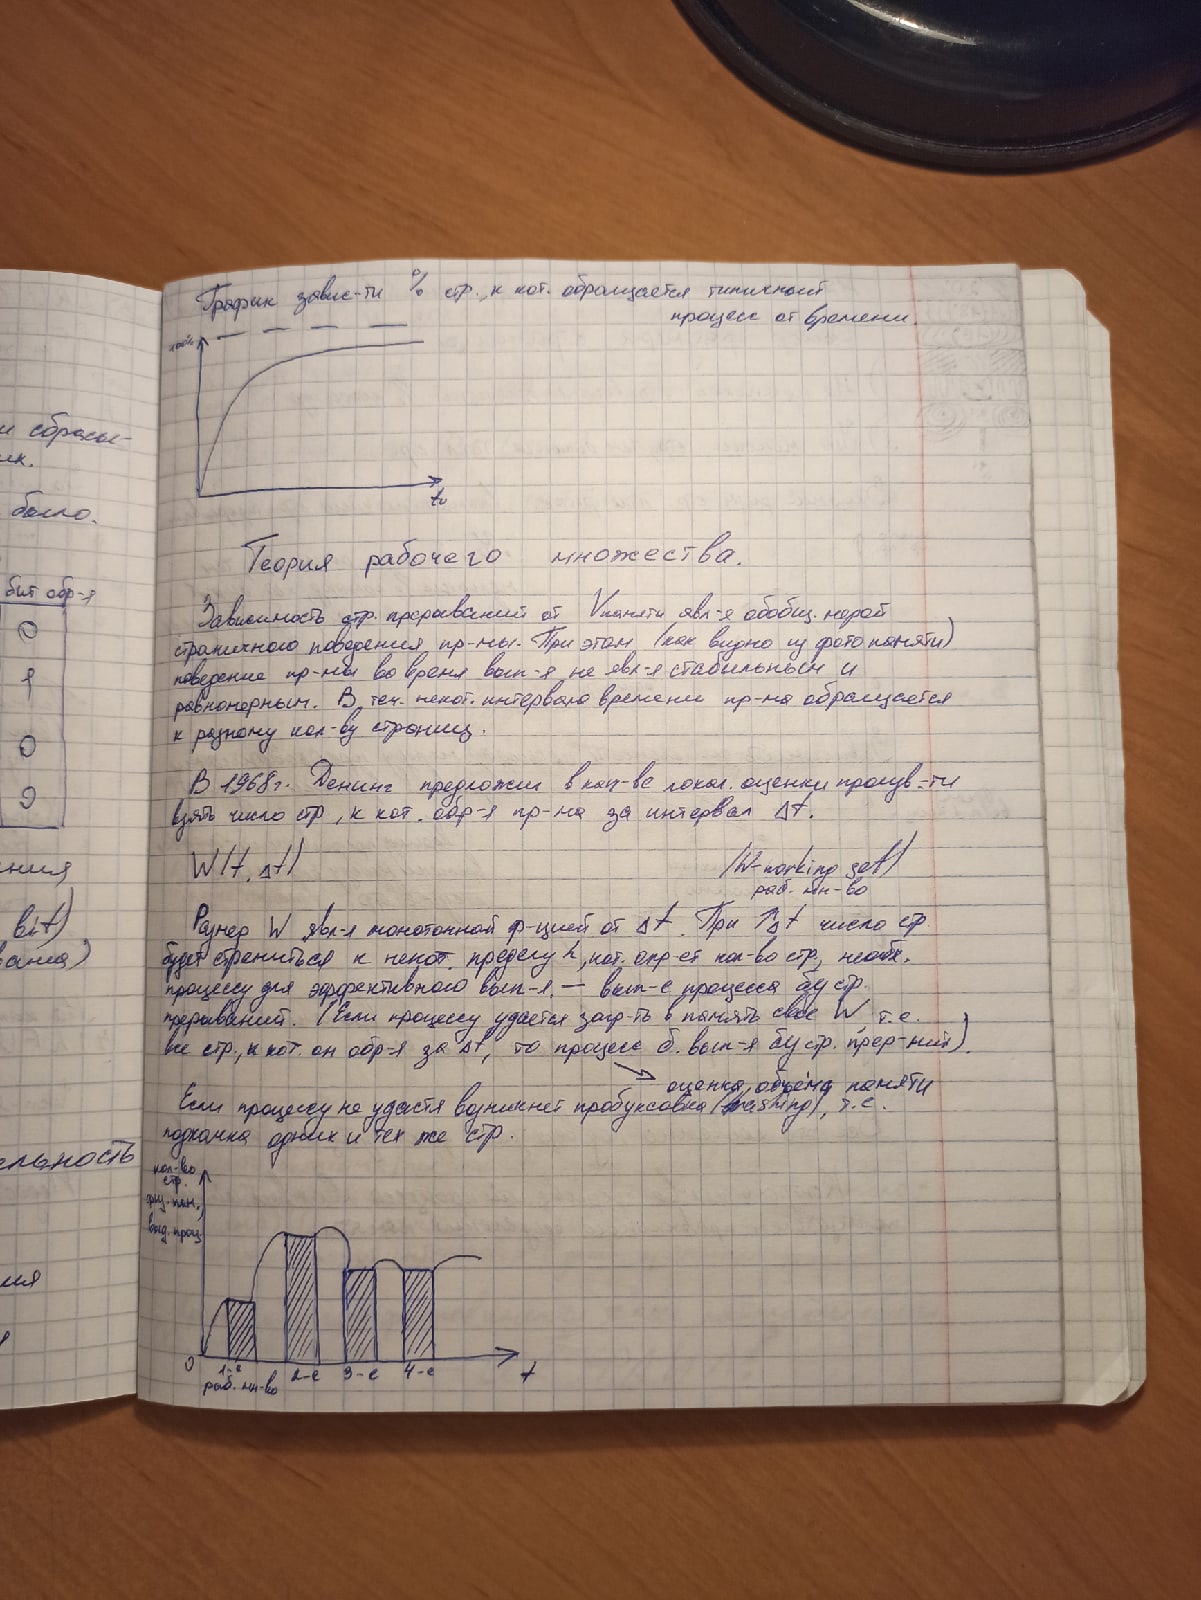 График завис-ти % стр., к кот. обращается типичный
процесс от времени.
100%
t
Теория рабочего множества.
Зависимость стр. прерываний от V памяти явл-я обобщ. мерой
страничного поведения пр-мы. При этом (как видно из фото памяти)
поведение пр-мы во время вып-я не явл-я стабильным и
равномерным. В теч. некот. интервала времени пр-ма обращается
к разному кол-ву страниц.
В 1968г. Денинг предложил в кач-ве локал. оценки
взять число стр, к кот. обр-я пр-ма за интервал Δt.
W(t, Δt)
(W-working set)
раб. мн-во
Размер W явл-я монотонной ф-цией от Δt. При ↑Δt число стр
будет стремиться к некот. пределу, кот. опр-ет кол-во стр, необх.
процессу для эффективного вып-я. — вып-е процесса без стр.
прерываний. (Если процессу удается загр-ть в память свое W, т.е.
все стр., к кот. он обр-я за Δt, то процесс б. вып-я без стр. прер-ний).
оценка объёма памяти
Если процессу не удастя возникнет пробуксовка (trashing), т.е.
подкачка одних и тех же стр.
кол-во
стр.
физ. пам.,
выд. проц.
0
1-е
2-е
3-е
4-е
t
раб. мн-во
и сбрасы-
ик.
было.
бит обр-я
0
1
0
0
ния
bit)
вания)
ельность
ния